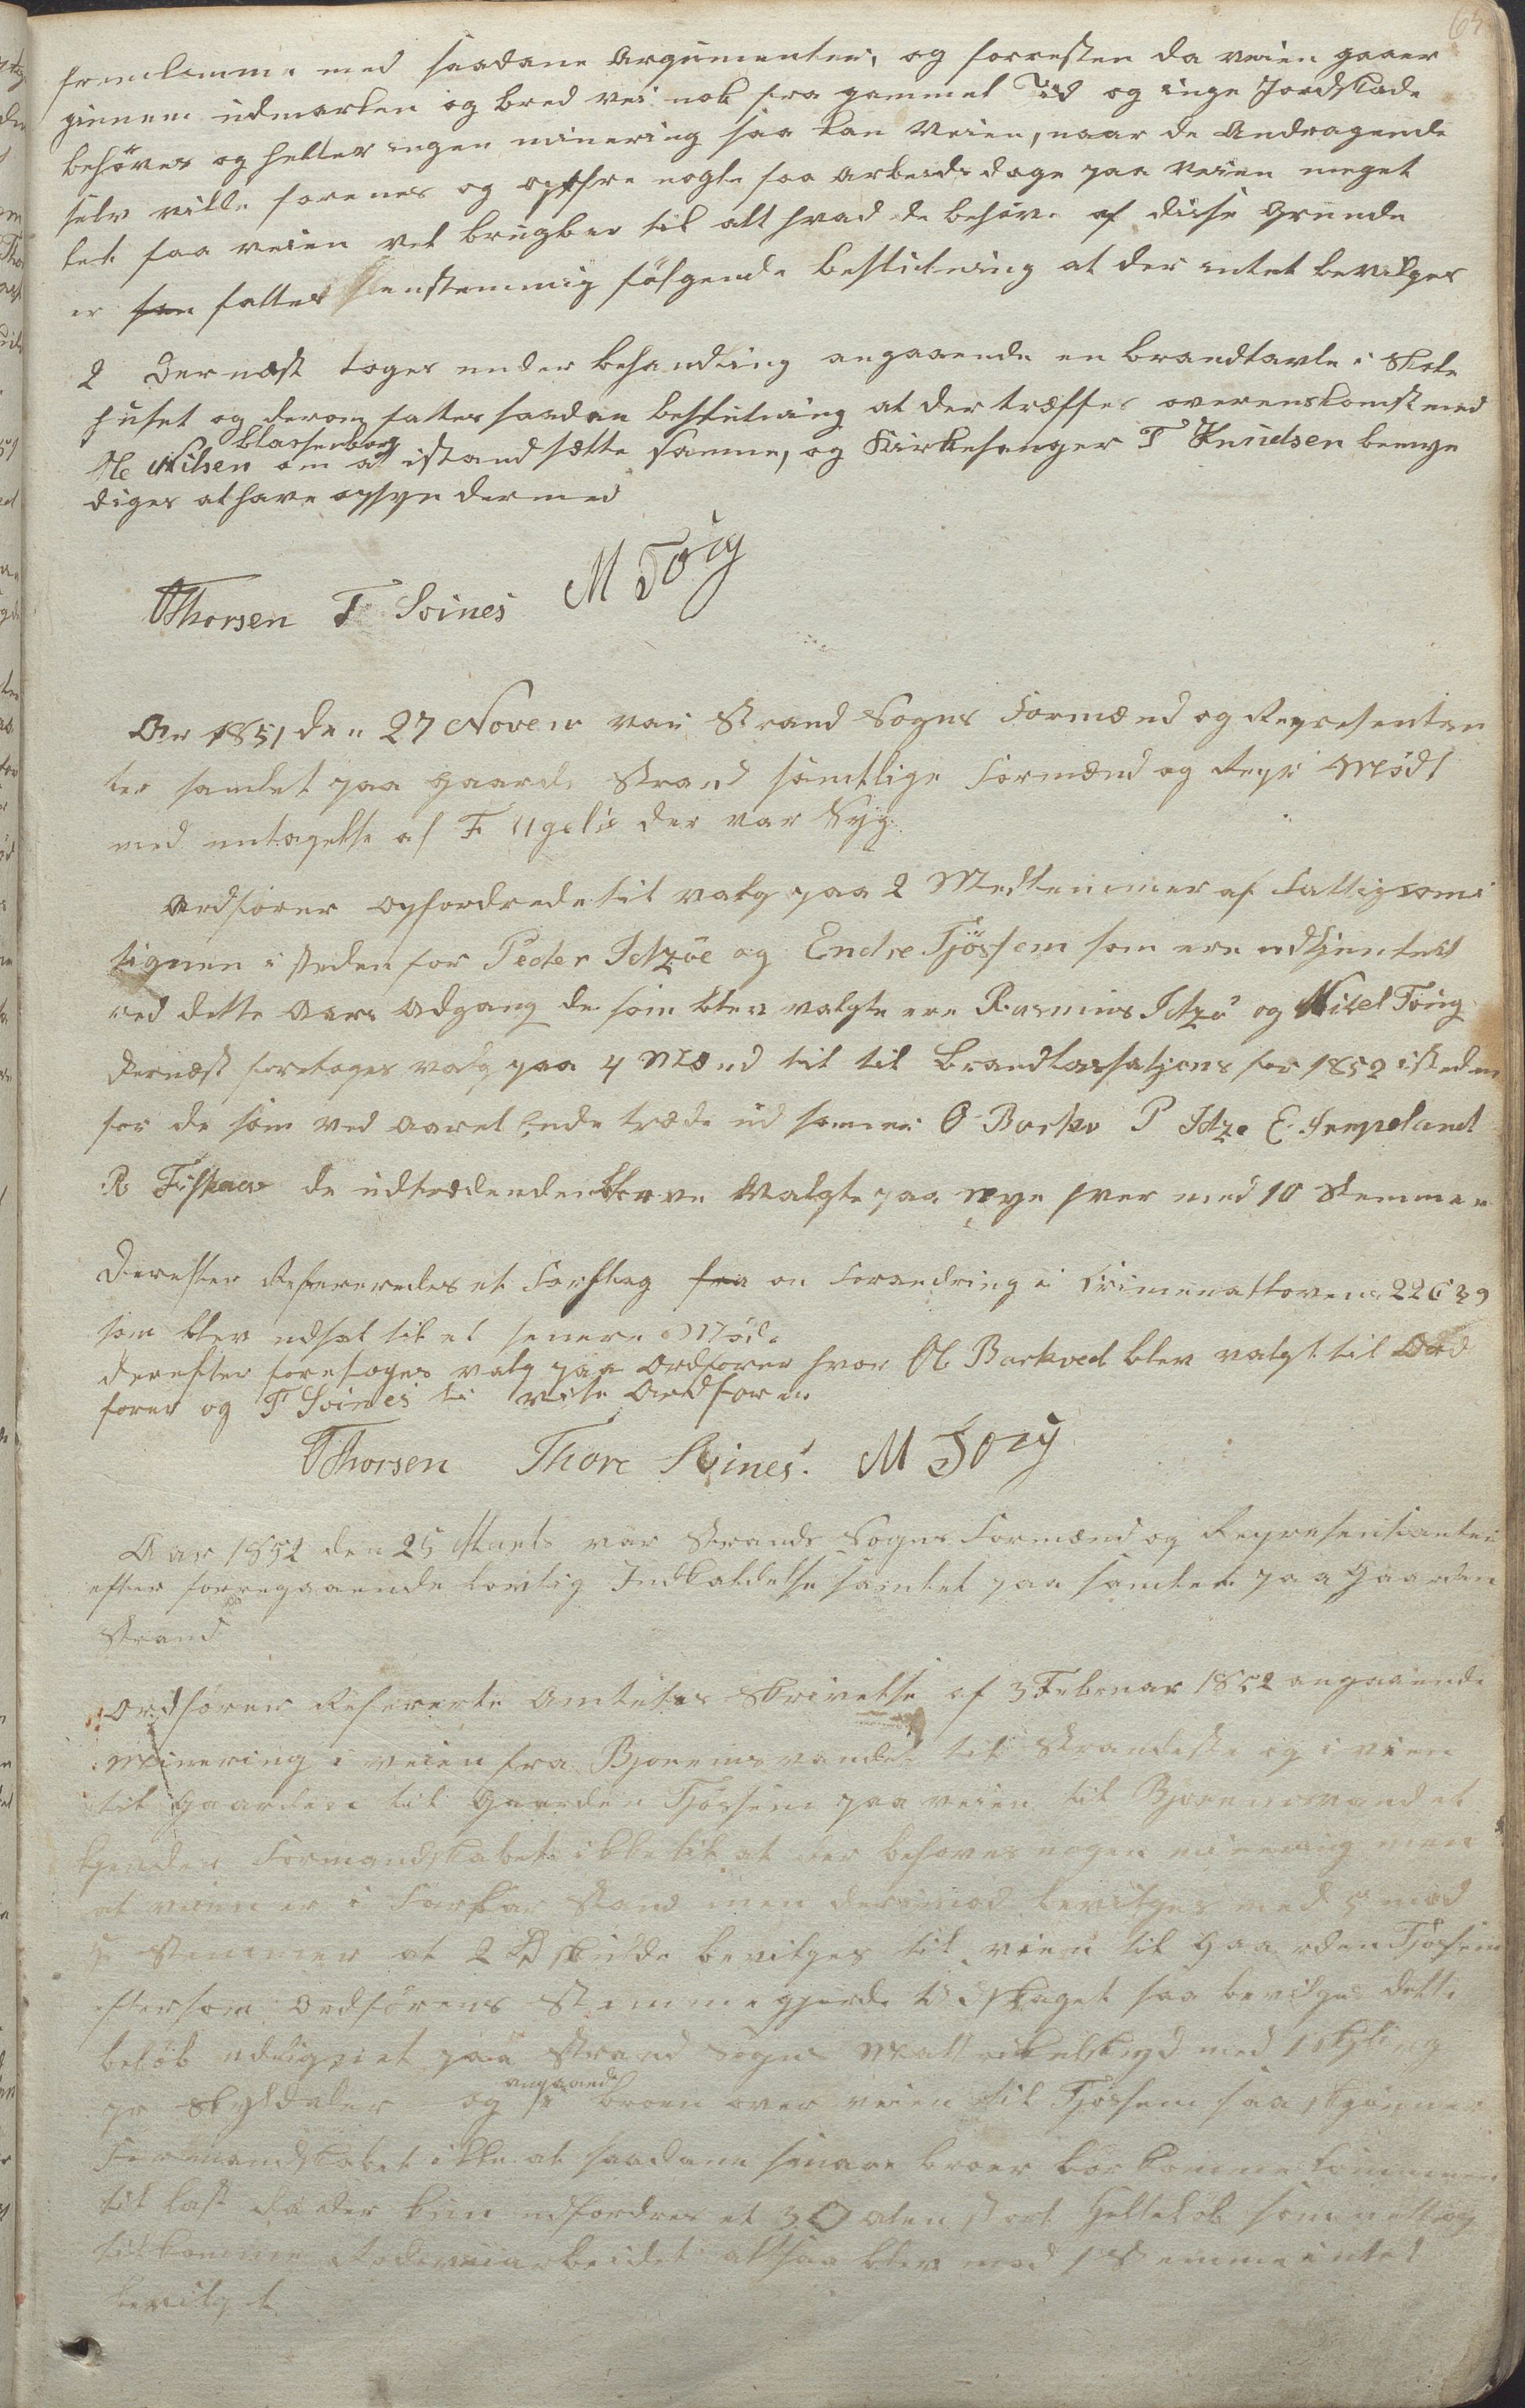 65
fremkomme med saadane Argumenter, og forresten da veien gaaer
giennem udmarken og bred vei nok fra gammel Tid og inge Jordskade
behöves og heller ingen minering saa kan Veien, naar de Andragende
selv ville forenes og opofre nogle faa Arbeidsdage paa Veien meget
let faa veien vel brugbar til alt hvad de behöve af disse Grunde
er fattet Eenstemmig fölgende beslutning at der intet bevilges
2 Dernæst toges under behandling angaaende en brandtavle i Skole
huset og derom fattes saadan beslutning at der træffes overenskomst med
Klassenborg
Ole Nilsen om at istandsætte samme, og Kirkesanger T Knudsen bemyn
diges at have opsyn dermed
OThorsen T Soines M Tøig
Aar 1851 den 27 Novem var Strand Sogns Formænd og Representan
ter samlet paa Gaarde Strand samtlige Formænd og Repr Mödt
med untagelse af F Ugelie der var Syg
Ordförer opfordrede til valg paa 2 Medlemmer af Fattigcomi
signen i steden for Peder Idzöe og Endre Tjössem som ere udtjente
ved dette Aars Udgang de som blev valgte ere Rasmus Idzö og Nils Töug
dernæst foretoges valg paa 4 Mænd til til brandtaxsatjons for 1852 isteden
for de som ved Aaret Ende træde ud samme O Barkv P Idze E Tempeland
R Fiskaa de udtrædenden bleve Valgte paa nye hver med 10 Stemmer
Derefter Refereredes et Forslag fra on Forandring i Criminalloven 22 C 39
som blev udsat til et senere Möde
derefter foretoges valg paa Ordforer hvor Ol Barkved blev valgt til Ord
forer og T Soines til vise Ordforer
OThorsen Thore Soines. M Töig
Aar 1852 den 25 Marts var Strands Sogns Formænd og Representanter
efter forregaaende lovlig Indkaldelse samlet paa samlet paa Gaarden
Strand
Ordförer Refererte Amtets Skrivelse af 3 Februar 1852 angaaende
Minering i veien fra Bjorems vandet til Strandeste og i veien
til Gaarden til Gaarden Tjössem paa veien til Bjoremsvandet
kjender Formandskabet ikke til at der behoves nogen minering men
at veien er i Forsvar Stand men derimod bevilges med 5 mod
5 Stemmer at 2 skulde bevilges til veien til Gaarden Tjössem
eftersom Ordförens Stemme gjorde Udslaget saa bevilges dette
belöb udlignet paa Strand Sogns Mattrikelskyld med 1 skyling
angaaende
pr Skylddaler og broen over veien til Tjössem saa skjönner
Formandskabet ikke at saadane smaae broer bör komme Kommunen
til last da der kun udfordres et 3 Alen stort
tilkomme Rodeveiarbeidet altsaa blev mod 1 Stemme intet
bevilget